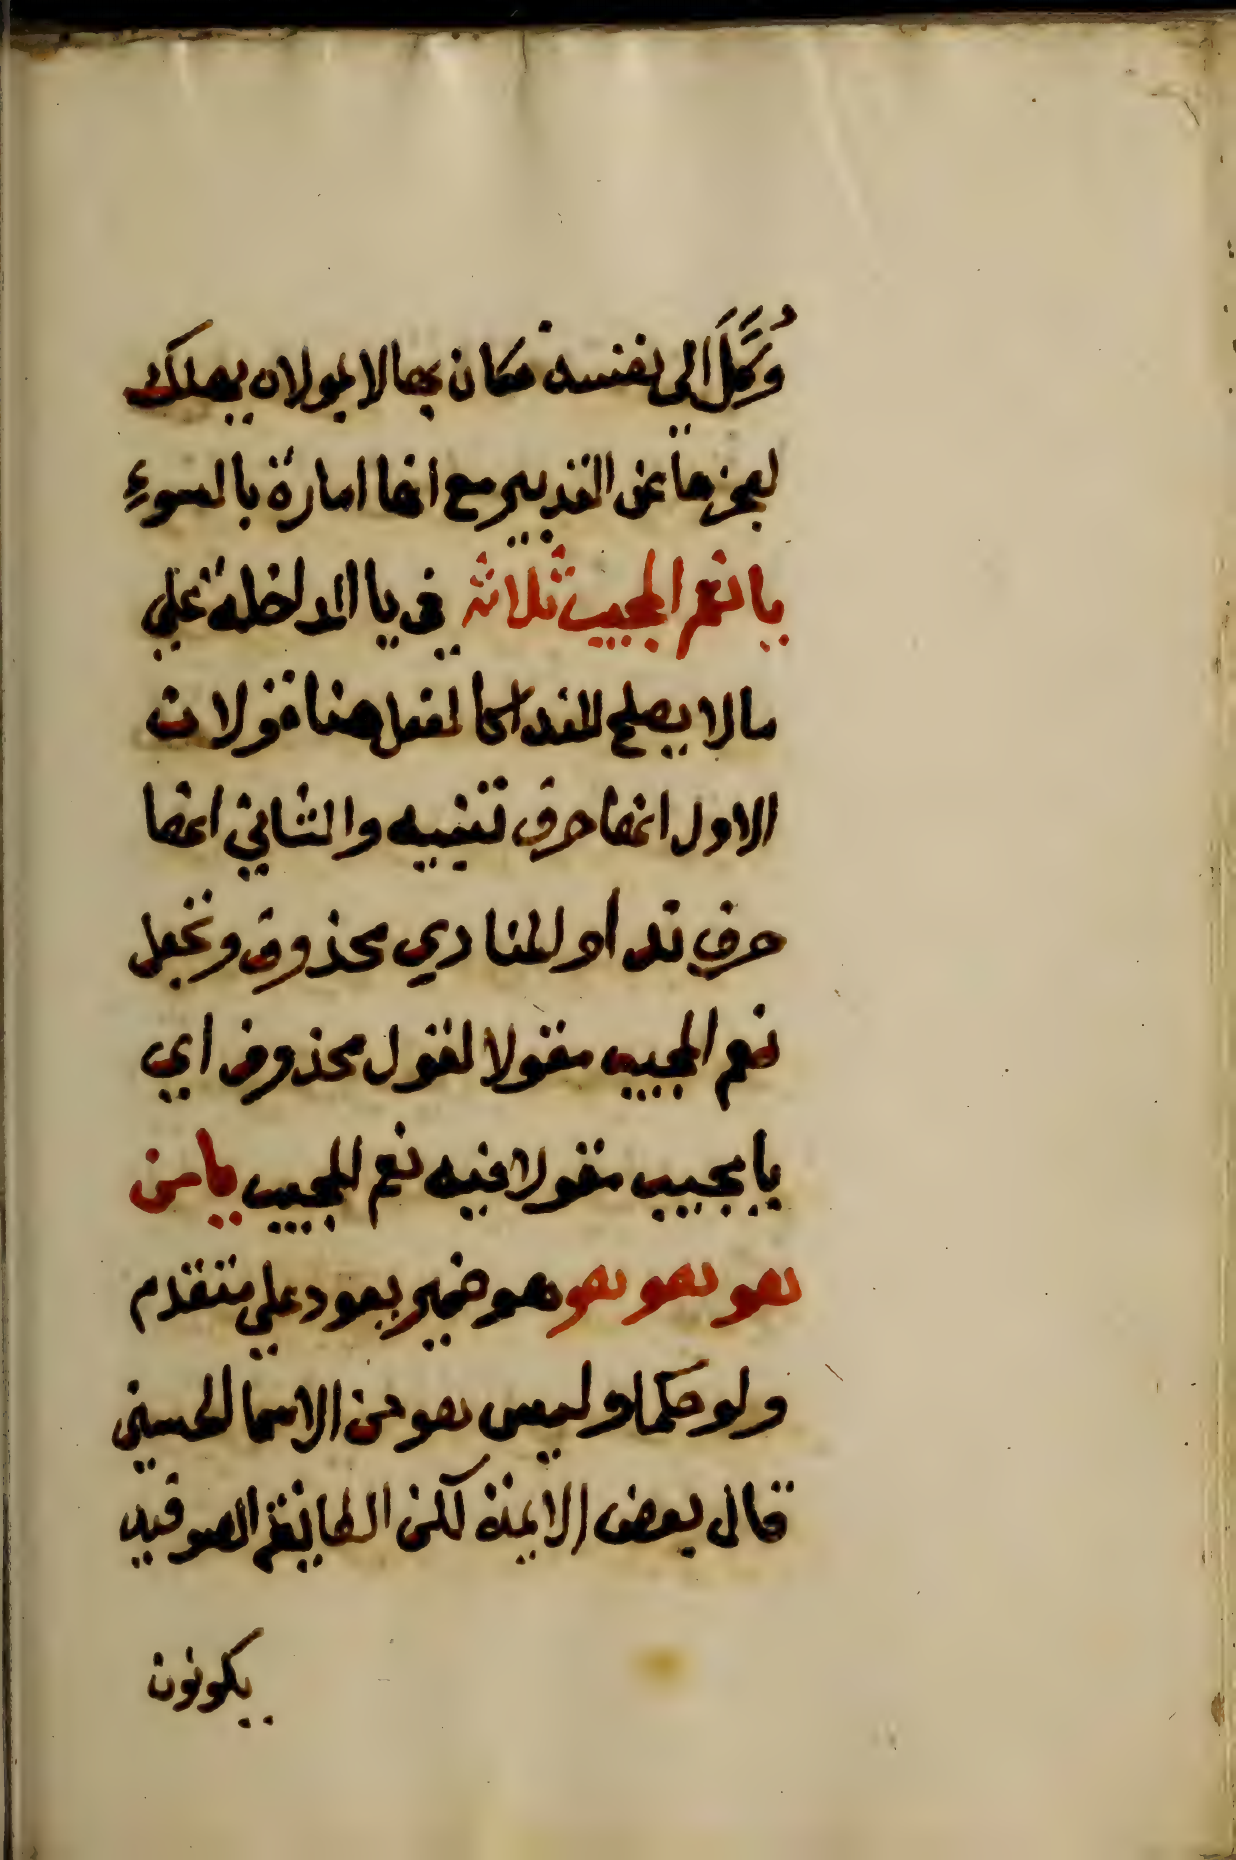 وُكِّلَ الي نفسه فكان بها لا بمولاه يهلك
لعجزها عن التدبير مع انها امارة بالسوءِ
يا نعم المجيب ثلاثة في يا الداخلة علي
ما لا يصلح للندا كما لفعل هنا قولات
الاول انها حرف تنبيه والثاني انها
حرف ندا والمنادي محذوف ونجعل
نعم المجيب مقولا لقول محذوف اي
يا مجيب مقولا فيه نعم المجيب يا من
هو هو هو هو ضمير يعود علي متقدم
ولو حكما وليس هو من الاسما الحسني
قال بعض الايمة لكن الطايفة الصوفيه
يكونون